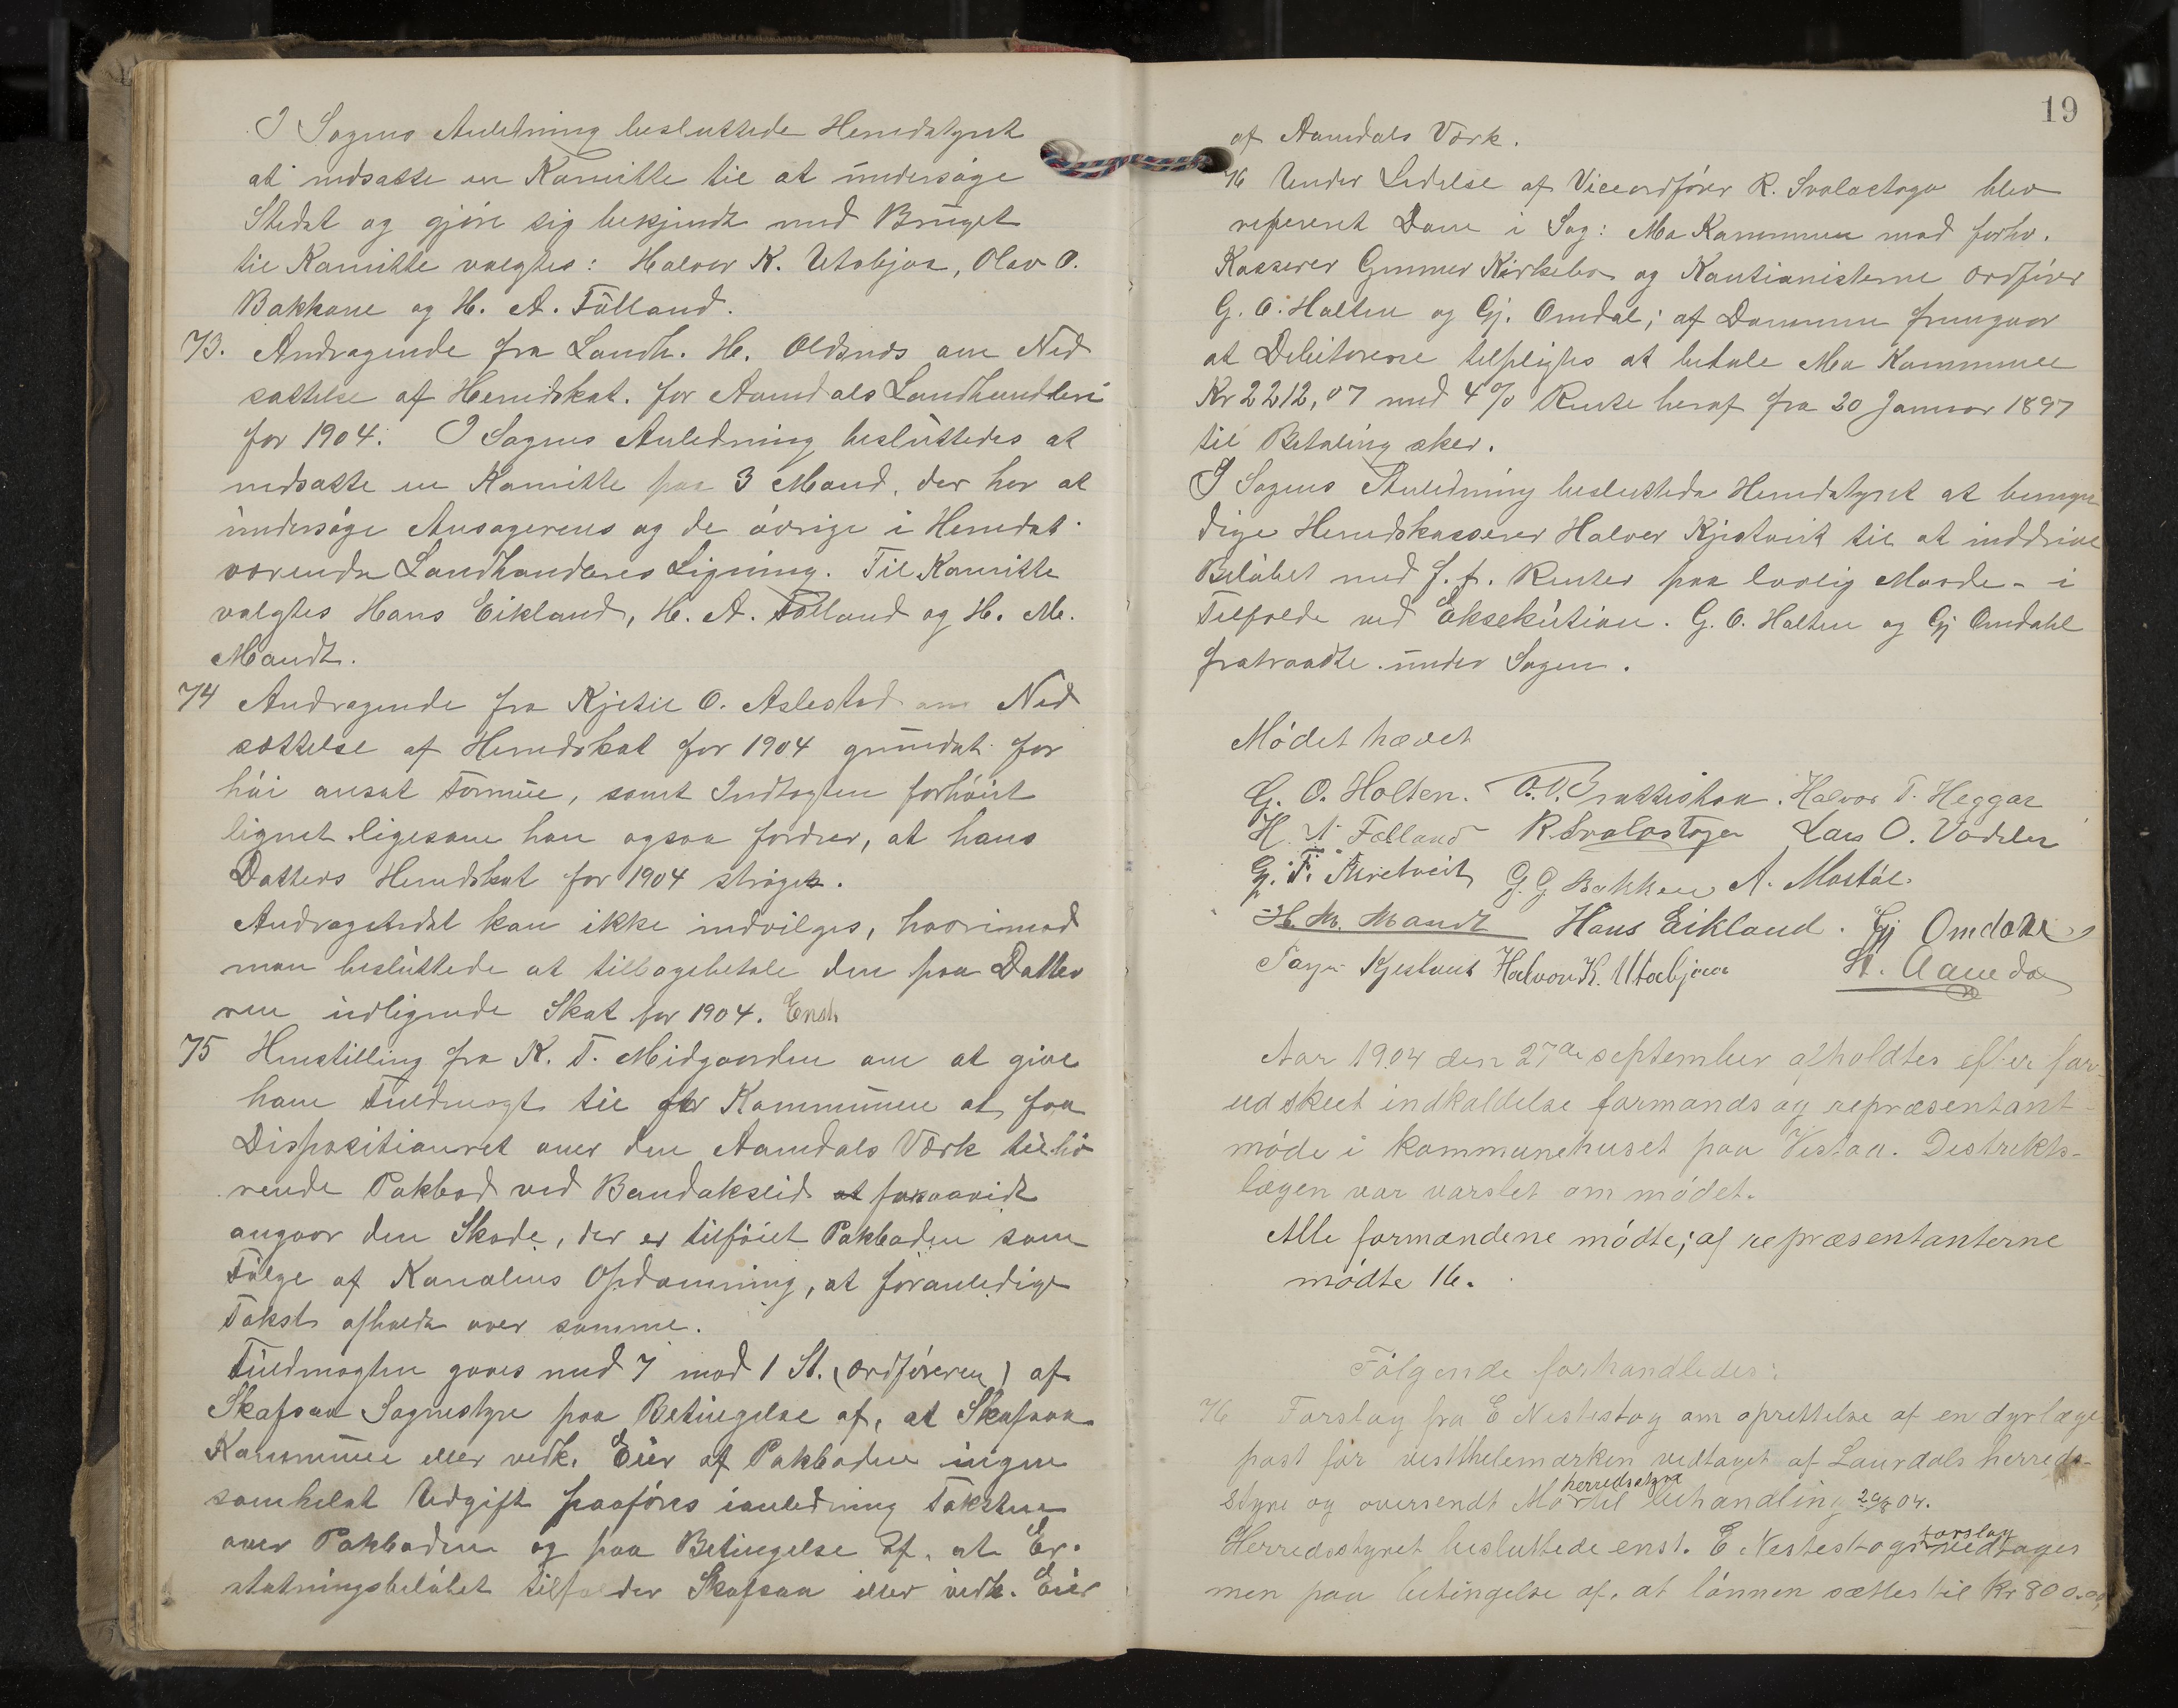 I Sagens Anledning besluttede Herredstyret
at nedsætte en Komitte til at undersøge
Stedet og gjøre sig bekjendt med Bruget
til Komitte valgtes: Halvor K. Utabjaa, Olav O.
Bakkane og H. A. Følland.
73. Andragende fra Landh. H. Oldsnes om Ned
sættelse af Herredskat. for Aamdals Landhandleri
for 1904. I Sagens Anledning besluttedes at
nedsætte en Komitte paa 3 Mand, der har at
undersøge Ansøgerens og de øvrige i Herredet
værende Landhandleres Ligning. Til Komitte
valgtes Hans Eikland, H. A. Følland og H. M.
Mandt.
74 Andragende fra Kjetil O. Aslestad om Ned
sættelse af Herredskat for 1904 grundet for
høi ansat Formue, samt Indtægten forhøiet
lignet ligesom han ogsaa fordrer, at hans
Datters Herredskat for 1904 strøges.
Andragendet kan ikke indvilges, hvorimod
man besluttede at tilbagebetale den paa Datte
ren udlignede Skat for 1904. Enst.
75 Henstilling fra K. T. Midgaarden om at give
ham Fuldmagt til for Kommunen at faa
Dispositionsret over den Aamdals Værk tilhø
rende Pakbod ved Bandakseid at forsaavidt
angaar den Skade, der er tilføiet Pakboden som
Følge af Kanalens Opdæmning, at foranledige
Takst afholdt over samme.
Fuldmagten gaves med 7 mod 1 St. (ordføreren) af
Skafsaa Sognestyre paa Betingelse af, at Skafsaa
Kommune eller vedk. Eier af Pakboden ingen
somhelst Udgift paaføres i anledning Taksten
over Pakboden og paa Betingelse af, at Er-
statningsbeløbet tilfalder Skafsaa eller vedk. Eier
19
af Aamdals Værk.
76 Under Ledelse af Viceordfører R. Svalastoga blev
referert Dom i Sag: Mo Kommune mod forhv.
Kasserer Gunnar Kirkebø og Kautionisterne ordfører
G. O. Holten og Gj. Omdal; af Dommen fremgaar
at Debitorene tilpligtes at betale Mo Kommune
Kr 2212,07 med 4% Rente heraf fra 20 Januar 1897
til Betaling sker.
I Sagens Anledning besluttede Herredstyret at bemyn
dige Herredskasserer Halvor Kjestveit til at inddrive
Beløbet med f. f. Renter paa lovlig Maade - i
Tilfælde ved Eksekution. G. O. Holten og Gj Omdahl
fratraadte under Sagen.
Mødet hævet
G. O. Holten. Halvor T. Heggaa
H. A. Følland R Svalastoga Lars O. Vadder
G. T. G. G Bakken A. Mostøl
H. M. Mandt Hans Eikland. Gj Omdahl
Kjestveit Halvor K. Utabjaa H. Aamdal
Aar 1904 den 27de september afholdtes efter for-
ud skeet indkaldelse formands og repræsentant-
møde i kommunehuset paa Vistaa. Distrikts-
lægen var varslet om mødet.
Alle formændene mødte; af repræsentanterne
mødte 16.
Følgende forhandledes:
76 Forslag fra E Nestestog om oprettelse af en dyrlæge
post for vestthelemarken vedtaget af Laurdals herreds-
styre og oversendt Mo herredsstyre til behandling 04.
Herredsstyret besluttede enst. E Nestestogs forslag vedtages
men paa betingelse af, at lønnen sættes til Kr 800.00,